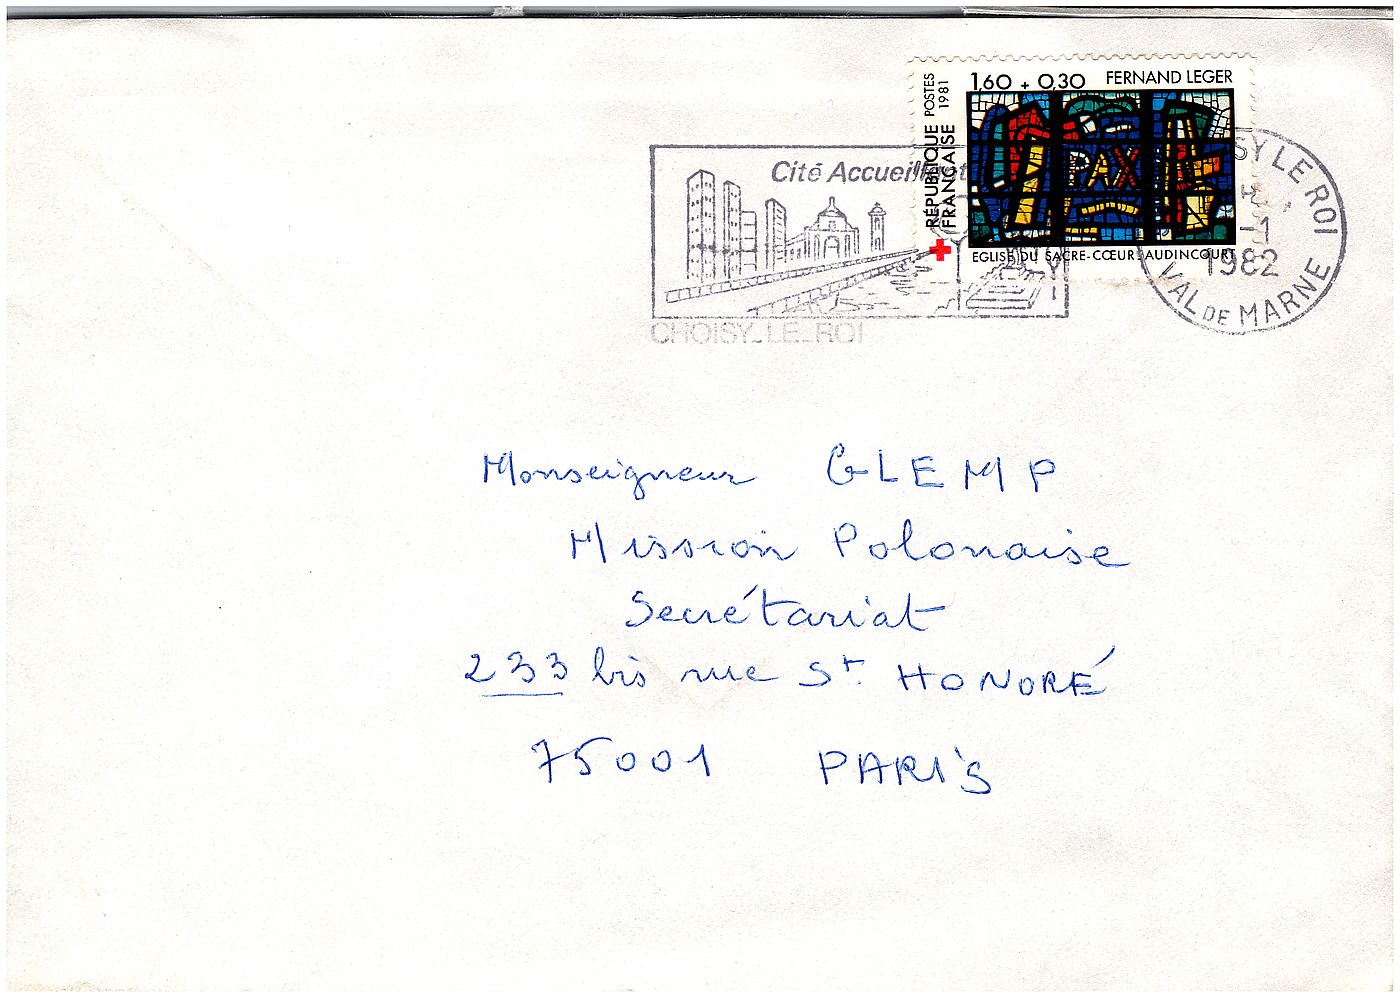 1,60 + 0,30 FERNAND LEGER
RÉPUBLIQUE FRANÇAISE
POSTES 1981
PAX
EGLISE DU SACRE-CŒUR: AUDINCOURT
Cité
CHOISY_LE_ROI
LE ROI
-1
1982
VAL DE MARNE
Monseigneur GLEMP
Mission Polonaise
Secrétariat
233 bis rue St. HONORÉ
75001 PARIS